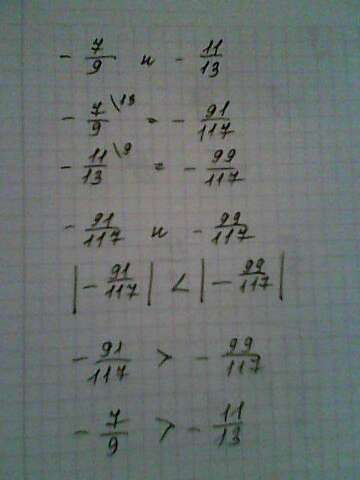 - 7/9 и - 11/13
- 7/9 \13 = - 91/117
- 11/13 \9 = - 99/117
- 91/117 и - 99/117
|- 91/117| < |- 99/117|
- 91/117 > - 99/117
- 7/9 > - 11/13